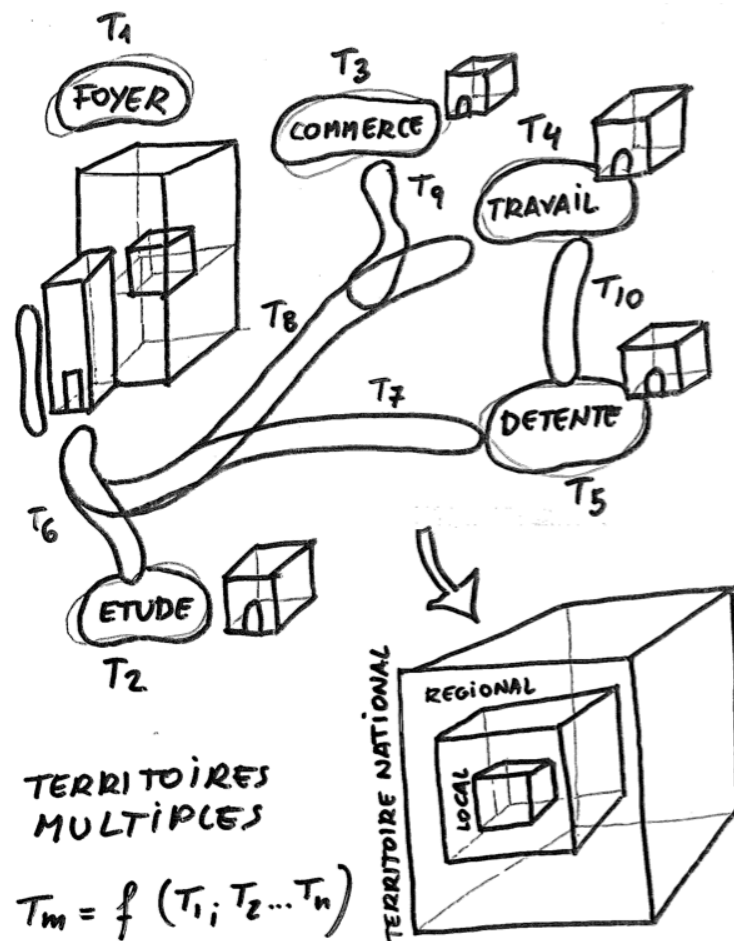 T1
FOYER
T3
COMMERCE
T4
TRAVAIL
T9
T8
T10
T7
DETENTE
T5
T6
ETUDE
T2
TERRITOIRE NATIONAL
REGIONAL
LOCAL
TERRITOIRES
MULTIPLES
Tm = f (T1; T2...Tn)